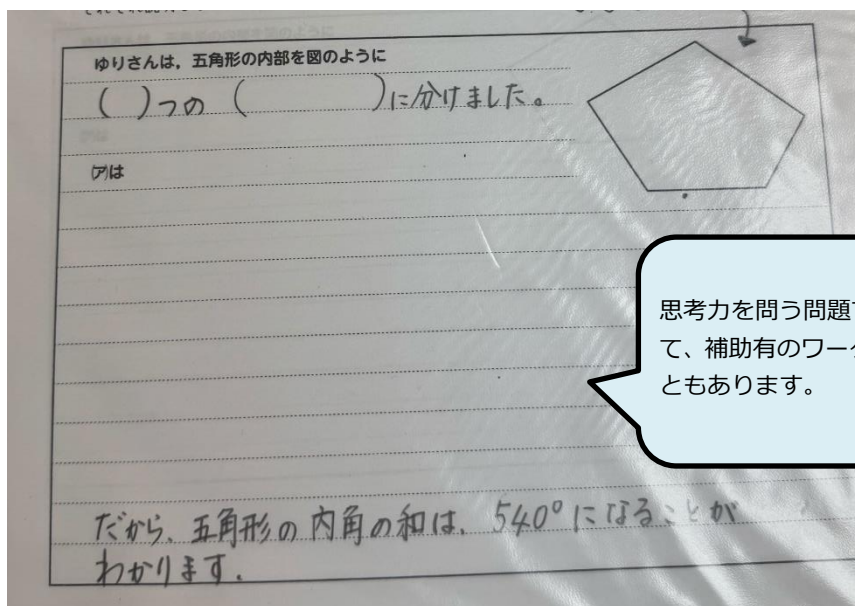 ゆりさんは，五角形の内部を図のように
( )つの ( )に分けました。
(ア)は
思考力を問う問題
て、補助有のワー
ともあります。
だから、五角形の内角の和は、540°になることが
わかります.